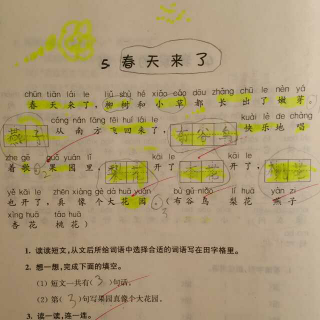 5 春天来了
chūn tiān lái le liǔ shù hé xiǎo cǎo dōu zhǎng chū le nèn yá
春天来了，柳树和小草都长出了嫩芽。
cóng nán fāng fēi huí lái le kuài lè de chàng
燕子 从南方飞回来了， 布谷鸟 快乐地唱
zhe gē guǒ yuán lǐ kāi le kāi le
着歌。果园里 梨花 开了， 开了，
yě kāi le zhēn xiàng gè dà huā yuán bù gǔ niǎo lí huā yàn zi
也开了，真像个大花园。（布谷鸟 梨花 燕子
xìng huā táo huā
杏花 桃花）
3
1. 读读短文，从文后所给词语中选择合适的词语写在田字格里。
2. 想一想，完成下面的填空。
(1) 短文一共有( 3 )句话。
(2) 第( 3 )句写果园真像个大花园。
3. 读一读，连一连。